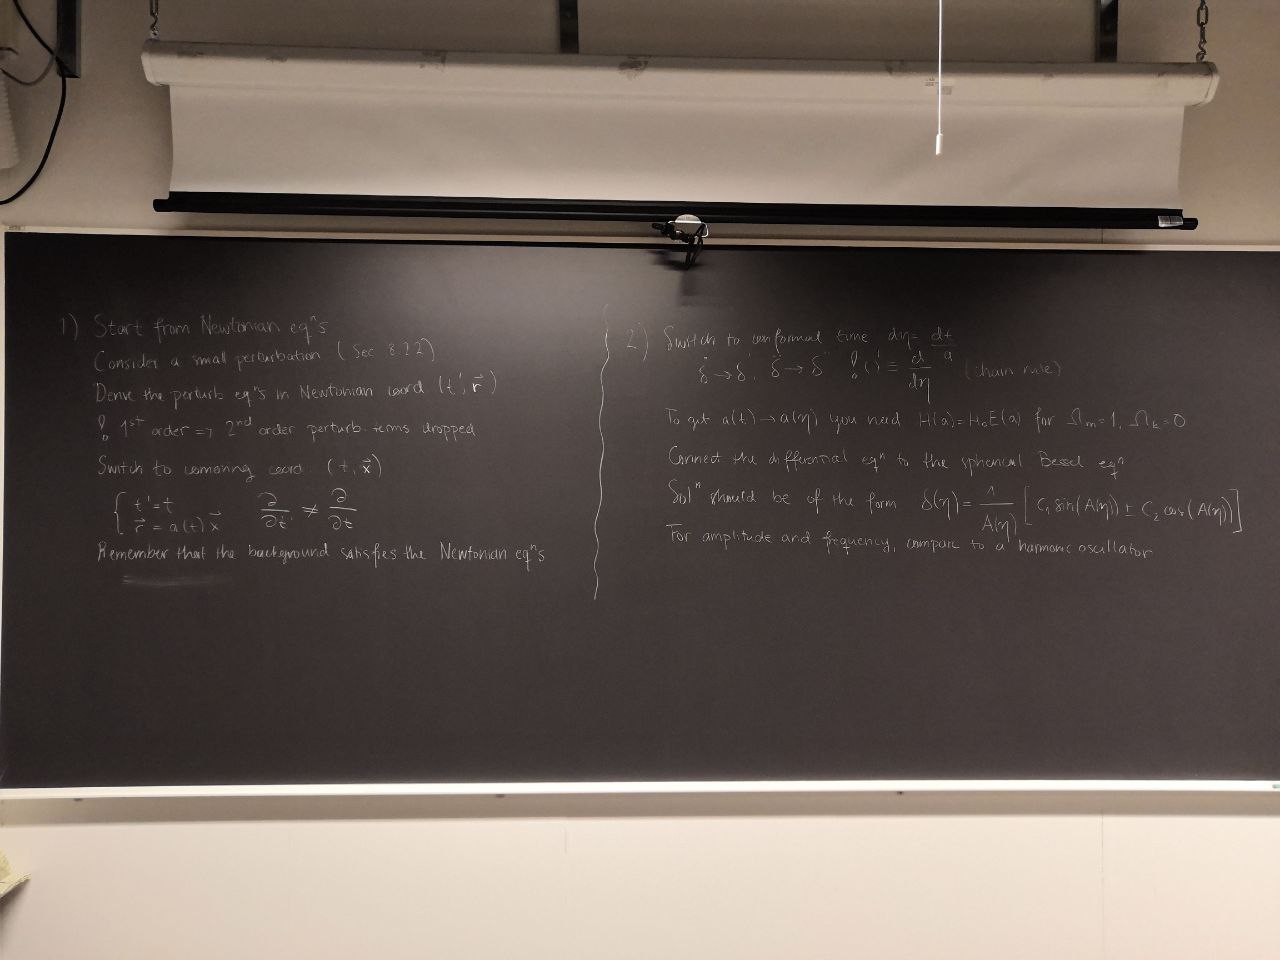 1) Start from Newtonian eqⁿs
Consider a small perturbation (Sec 8.2.2)
Derive the perturb eqⁿs in Newtonian coord (t', r⃗)
! 1ˢᵗ order => 2ⁿᵈ order perturb. terms dropped
Switch to comoving coord. (t, x⃗)
{ t' = t
r⃗ = a(t) x⃗
∂/∂t' ≠ ∂/∂t
Remember that the background satisfies the Newtonian eqⁿs
2) Switch to conformal time dη = dt/a
δ̇ → δ', δ̈ → δ'' ! (') ≡ d/dη (chain rule)
To get a(t) → a(η) you need H(a) = H₀E(a) for Ωₘ = 1, Ωₖ = 0
Connect the differential eqⁿ to the spherical Bessel eqⁿ
Solⁿ should be of the form δ(η) = 1/A(η) [C₁ sin(A(η)) ± C₂ cos(A(η))]
For amplitude and frequency, compare to a harmonic oscillator